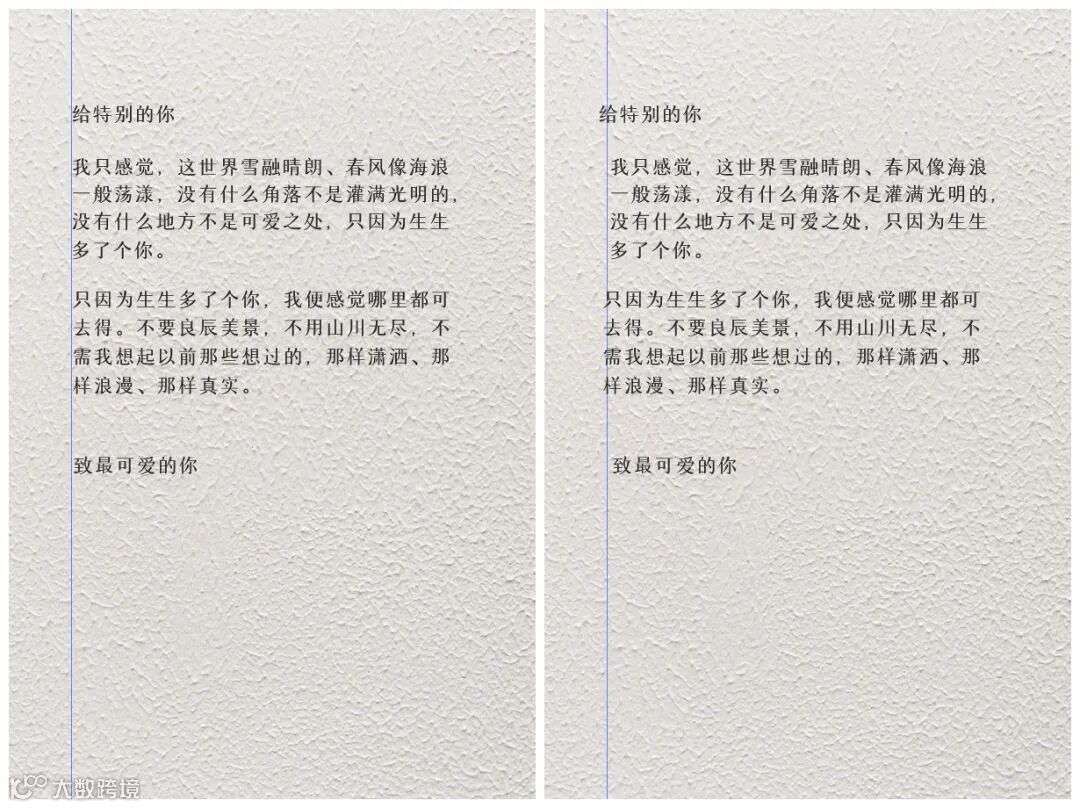 给特别的你
我只感觉，这世界雪融晴朗、春风像海浪
一般荡漾，没有什么角落不是灌满光明的，
没有什么地方不是可爱之处，只因为生生
多了个你。
只因为生生多了个你，我便感觉哪里都可
去得。不要良辰美景，不用山川无尽，不
需我想起以前那些想过的，那样潇洒、那
样浪漫、那样真实。
致最可爱的你
给特别的你
我只感觉，这世界雪融晴朗、春风像海浪
一般荡漾，没有什么角落不是灌满光明的，
没有什么地方不是可爱之处，只因为生生
多了个你。
只因为生生多了个你，我便感觉哪里都可
去得。不要良辰美景，不用山川无尽，不
需我想起以前那些想过的，那样潇洒、那
样浪漫、那样真实。
致最可爱的你
大数跨境